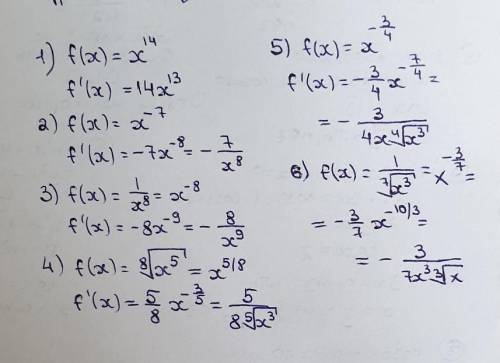 1) f(x) = x^14
f'(x) = 14x^13
2) f(x) = x^-7
f'(x) = -7x^-8 = - 7/x^8
3) f(x) = 1/x^8 = x^-8
f'(x) = -8x^-9 = - 8/x^9
4) f(x) = ⁸√x^5 = x^5/8
f'(x) = 5/8 x^-3/5 = 5/(8 ⁵√x^3)
5) f(x) = x^-3/4
f'(x) = -3/4 x^-7/4 =
= - 3/(4x ⁴√x^3)
6) f(x) = 1/⁷√x^3 = x^-3/7 =
= -3/7 x^-10/3 =
= - 3/(7x^3 ³√x)